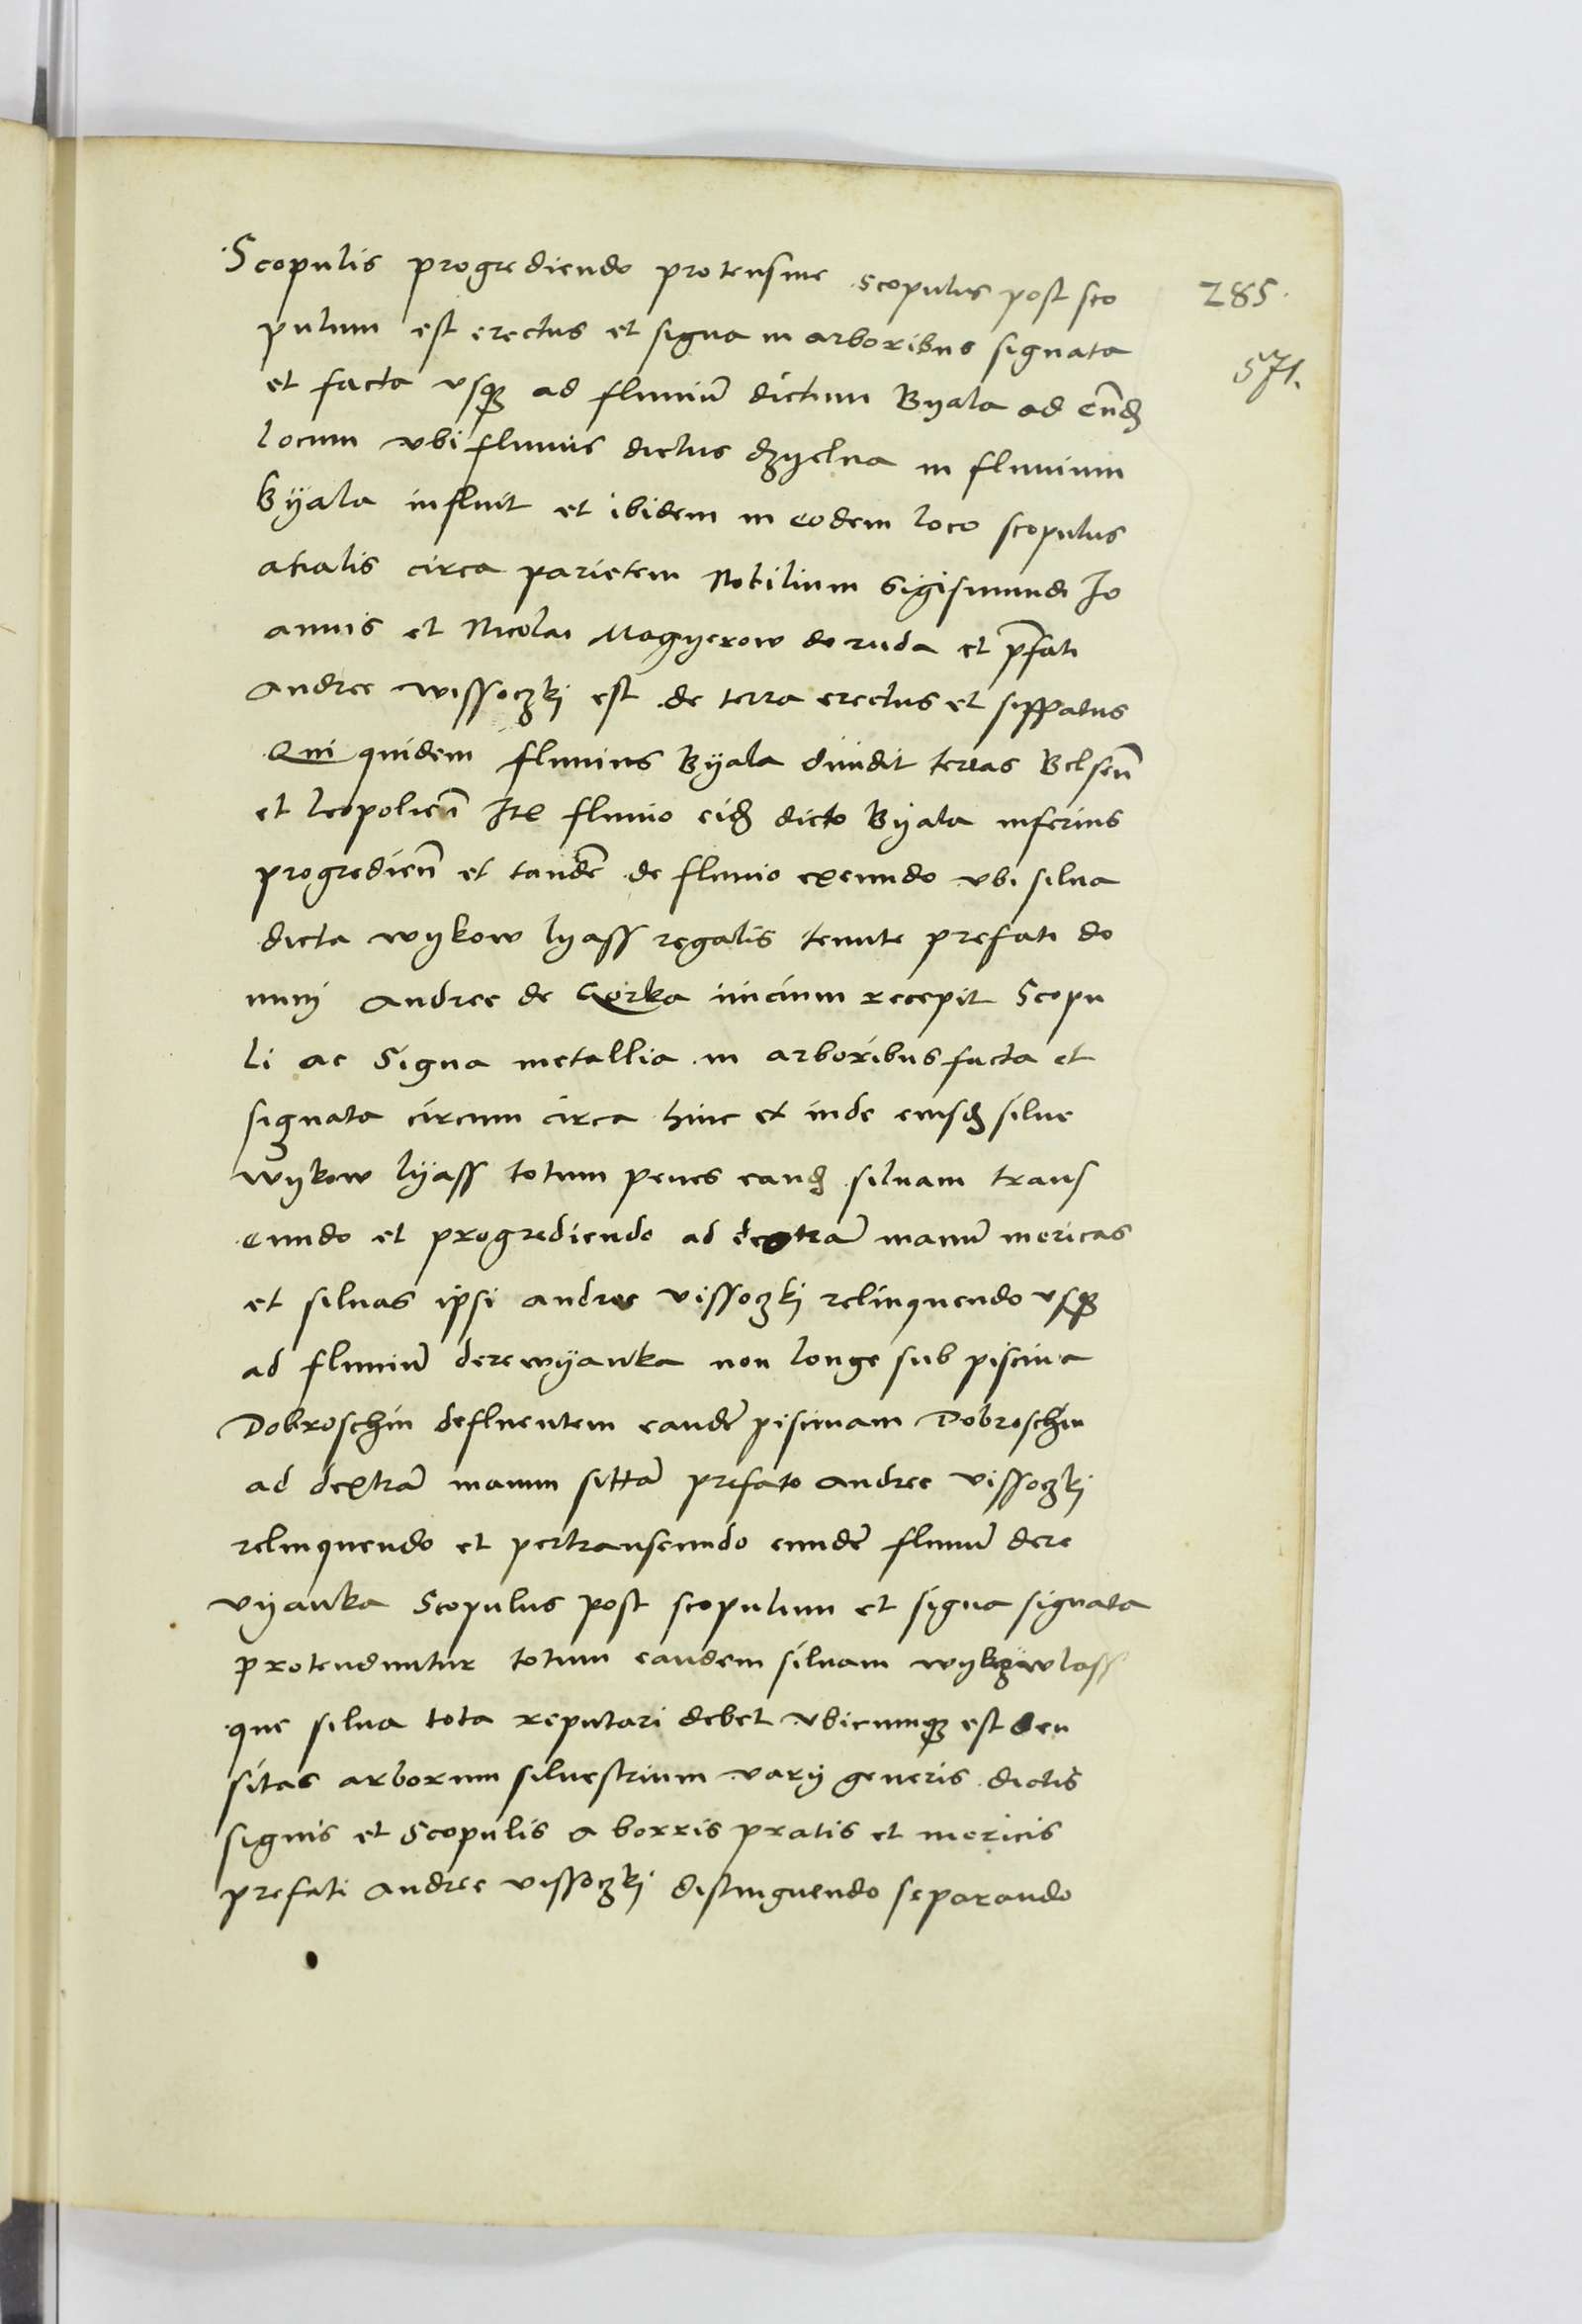 Scopulis progrediendo protensive scopulus post sco
285.
pulum est erectus et signa in arboribus signata
571.
et facta vsq3 ad fluuiũ dictum Byala ad eũd
locum vbi fluuius dictus dzyelna in fluuium
byala influit et ibidem in eodem loco scopulus
acialis circa parietem Nobilium Sigismundi Jo
annis et Nicolai Magyerow de ruda et p̃fati
Andree wissoczkj est de terra erectus et sippatus
Qui quidem fluuius Byala diuidit terras Belseñ
et leopolieñ Itẽ fluuio eid dicto Byala inferius
progredieñ et tandẽ de fluuio exeundo vbi silua
dicta wykow lyass regalis tenute prefati do
mini Andree de Gorka inicium recepit Scopu
li ac Signa metallia in arboribus facta et
signata circum circa hinc et inde eiusd silue
wykow lyass totum penes eand siluam trans
eundo et progrediendo ad dextrã manũ mericas
et siluas ipsi Andree vissoczkj relinquendo vsq3
ad fluuiũ derewyanka non longe sub piscina
Dobroschin defluentem eandẽ piscinam Dobroschin
ad dextrã manum sittã prefato Andree vissoczkj
relinquendo et pertranseundo eundẽ fluuiũ dere
vyanka Scopulus post scopulum et signa signata
protenduntur totum eandem siluam lass
que silua tota reputari debet vbicumq3 est den
sitas arborum siluestrium varij generis dictis
signis et Scopulis a borris pratis et mericis
prefati Andree vissoczkj distinguendo separando